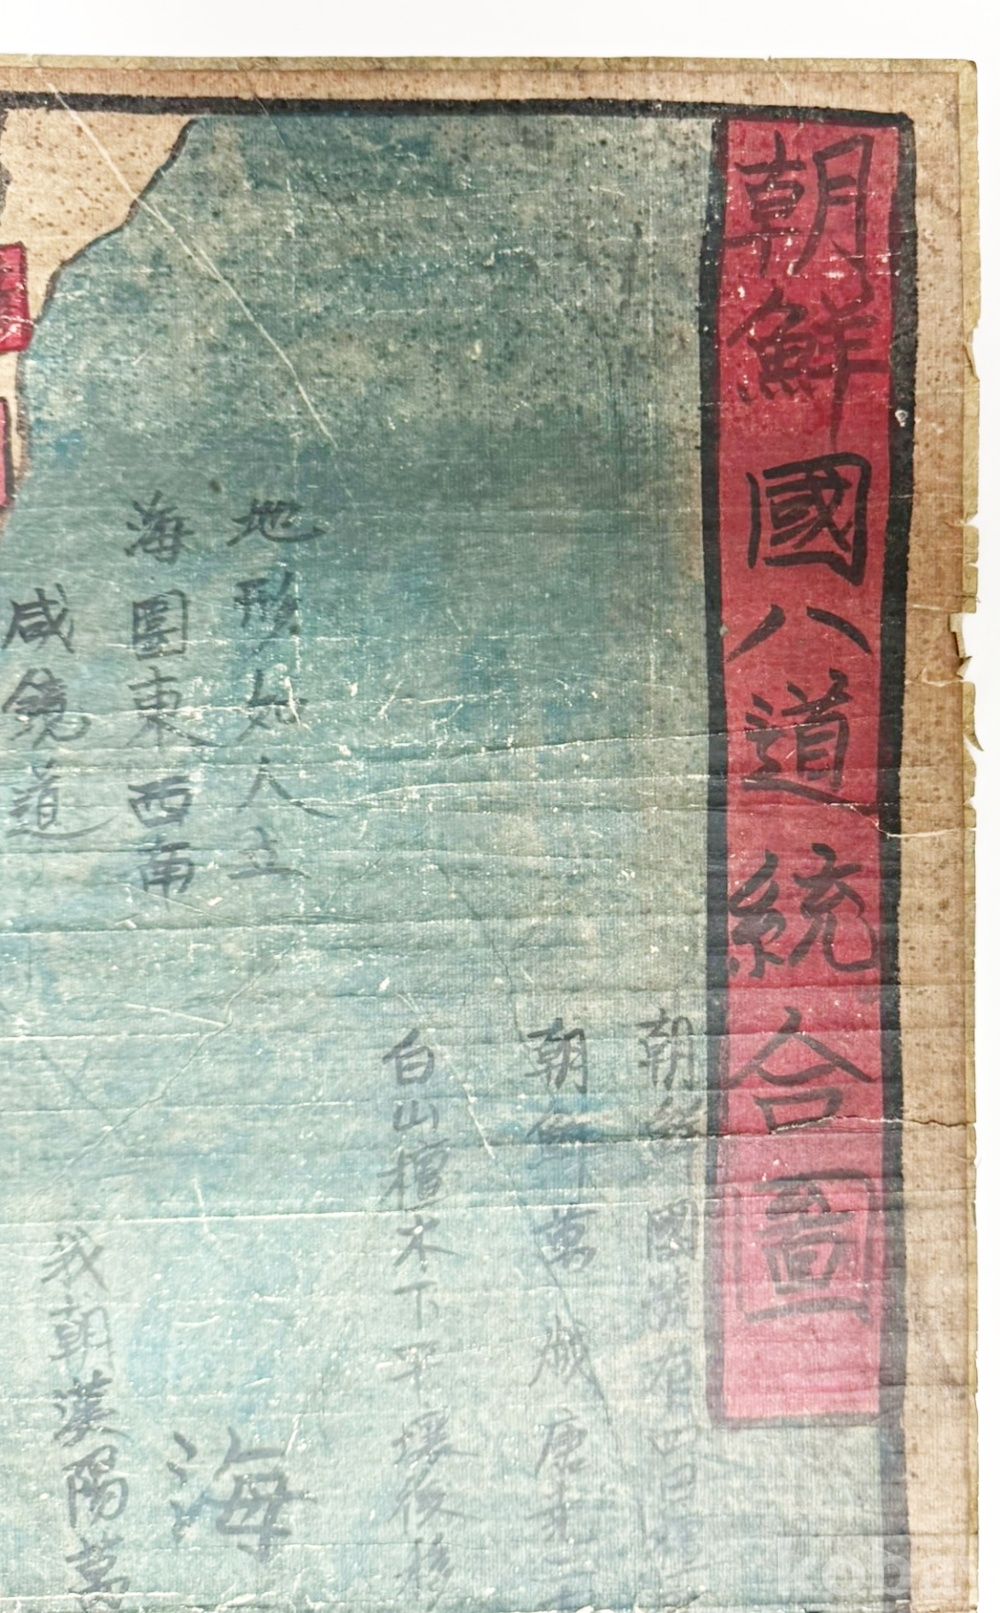 朝鮮國八道統合圖
朝鮮國號有四曰
朝鮮萬 唐堯二
白山檀木下平壤後移
地形如人立
海圍東西南
海
我朝漢陽萬
咸鏡道
koba